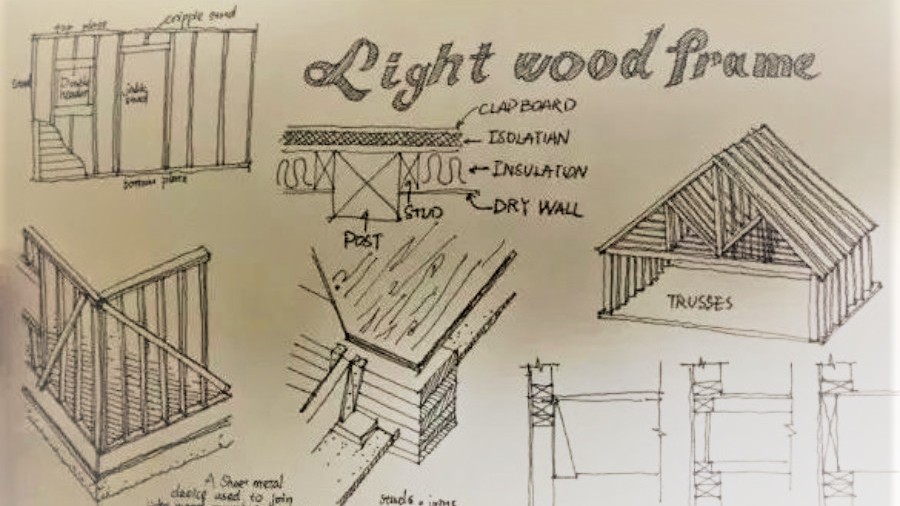 top plate
cripple stud
Stud
Double
header
jack
stud
bottom plate
Light wood frame
CLAPBOARD
ISOLATIAN
INSULATION
STUD
DRY WALL
POST
TRUSSES
A Sheer metal
device used to join
studs